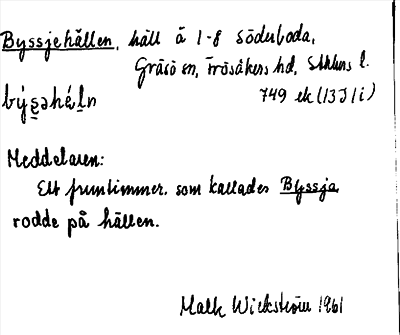 Byssjehällen, häll å 1-8 Söderboda,
Gräsö sn, Frösåkers hd, Sthlms l.
býs̯əhä́ḷn 749 ek (13J1i)
Meddelaren:
Ett fruntimmer som kallades Byssja
rodde på hällen.
Malk Wickström 1961